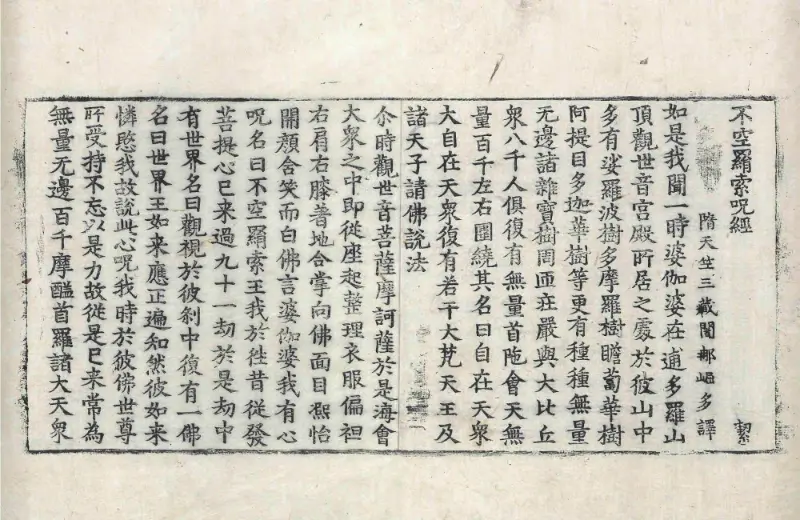 不空羂索呪經 絜
隋天竺三藏闍那崛多譯
如是我聞一時婆伽婆在逋多羅山
頂觀世音宮殿所居之處於彼山中
多有娑羅波樹多摩羅樹瞻蔔華樹
阿提目多迦華樹等更有種種無量
无邊諸雜寶樹周匝莊嚴與大比丘
衆八千人俱復有無量首陁會天無
量百千左右圍繞其名曰自在天衆
大自在天衆復有若干大梵天王及
諸天子請佛說法
尒時觀世音菩薩摩訶薩於是海會
大衆之中即從座起整理衣服偏袒
右肩右膝著地合掌向佛面目熙怡
開顏含笑而白佛言婆伽婆我有心
呪名曰不空羂索王我於徃昔從發
菩提心已来過九十一劫於是劫中
有世界名曰觀視於彼刹中復有一佛
名曰世界王如来應正遍知然彼如来
憐愍我故說此心呪我時於彼佛世尊
所受持不忘以是力故從是已来常為
無量无邊百千摩醯首羅諸大天衆